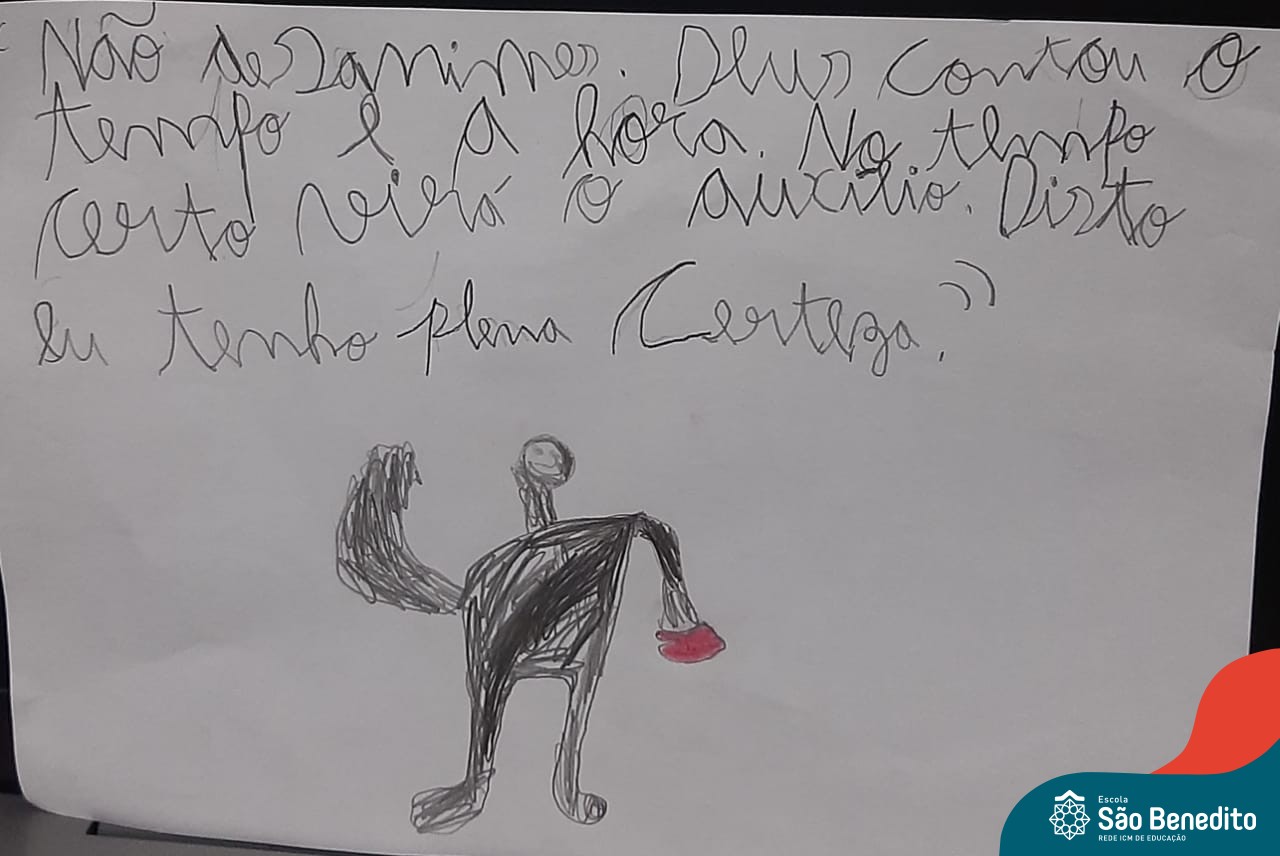 "Não desanimes. Deus contou o
tempo e a hora. No tempo
certo virá o auxílio. Disto
eu tenho plena Certeza."
Escola
São Benedito
REDE ICM DE EDUCAÇÃO